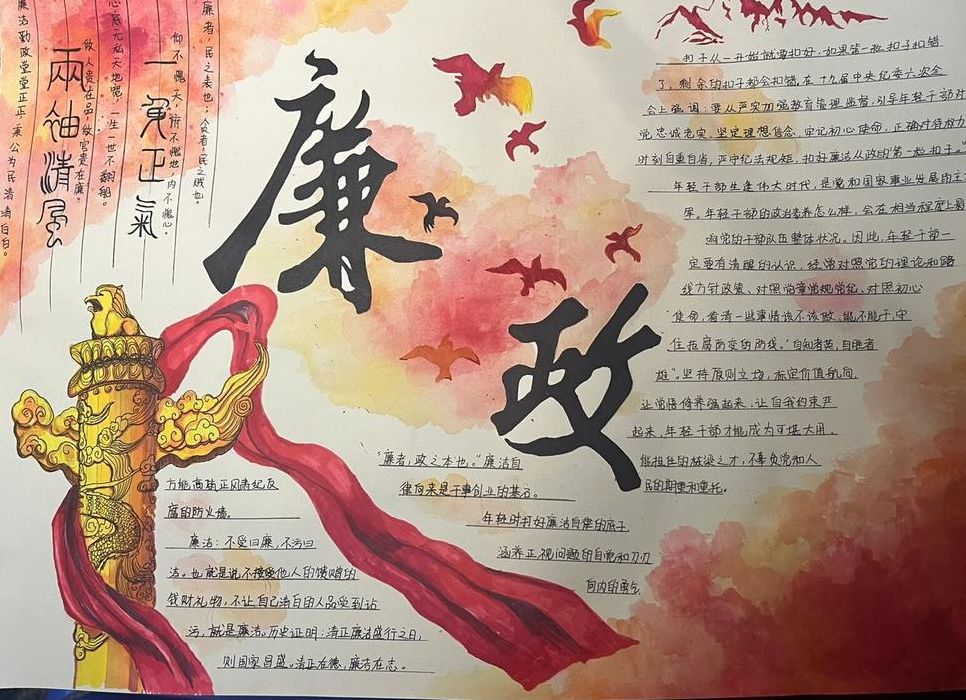 廉者,民之表也;贪者,民之贼也。
仰不愧天,俯不愧地,内不愧心。
一身正氣
心底无私天地宽,一生一世不翻船。
做人贵在品,做官贵在廉。
兩袖清風
廉洁勤政堂堂正正,秉公为民清清白白。
廉
政
扣子从一开始就要扣好,如果第一粒扣子扣错
了,剩余的扣子都会扣错,在十九届中央纪委六次全
会上强调:要从严实加强教育管理监督,引导年轻干部对
党忠诚老实,坚定理想信念,牢记初心使命,正确对待权力
时刻自重自省,严守纪法规矩,扣好廉洁从政的“第一粒扣子。”
年轻干部生逢伟大时代,是党和国家事业发展的主
军,年轻干部的政治素养怎么样,会在相当程度上影
响党的干部队伍整体状况。因此,年轻干部一
定要有清醒的认识,经常对照党的理论和路
线方针政策、对照党章党规党纪、对照初心
使命,看清一些事情该不该做,能不能干,守
住拒腐防变的防线。“自知者英,自胜者
雄”。坚持原则立场,标定价值航向,
让觉悟修养强起来,让自我约束严
起来,年轻干部才能成为可堪大用、
能担任的栋梁之才,不辜负党和人
民的期望和重托。
“廉者,政之本也。”廉洁自
律向来是干事创业的基石。
年轻时打好廉洁自律的底子
涵养正视问题的自觉和刀刃
向内的勇气
方能高筑正风肃纪反
腐的防火墙。
廉洁:不受曰廉,不污曰
洁。也就是说不接受他人的馈赠的
钱财礼物,不让自己清白的人品受到玷
污,就是廉洁。历史证明:清正廉洁盛行之日,
则国家昌盛。清正在德,廉洁在志。